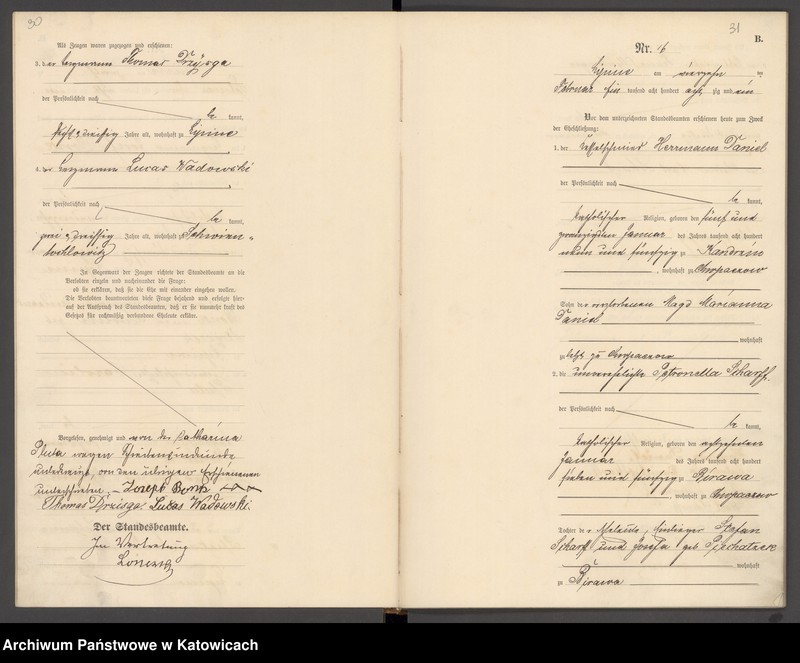 30
Als Zeugen waren zugezogen und erschienen:
3. der Bergmann Thomas Drzisga
der Persönlichkeit nach
be kannt,
acht u. dreissig Jahre alt, wohnhaft zu Lipine
4. der Bergmann Lucas Wadowski
der Persönlichkeit nach
be kannt,
zwei u. dreissig Jahre alt, wohnhaft zu Schwien-
tochlowitz
In Gegenwart der Zeugen richtete der Standesbeamte an die
Verlobten einzeln und nacheinander die Frage:
ob sie erklären, daß sie die Ehe mit einander eingehen wollen.
Die Verlobten beantworteten diese Frage bejahend und erfolgte hier-
auf der Ausspruch des Standesbeamten, daß er sie nunmehr kraft des
Gesetzes für rechtmäßig verbundene Eheleute erkläre.
Vorgelesen, genehmigt und von der Katharina
Pluta wegen Schreibensunkunde
unterkreuzt, von den übrigen Erschienenen
unterschrieben. Joseph +++
Thomas Drzisga. Lucas Wadowski.
Der Standesbeamte.
In Vertretung
31
B.
Nr. 16
Lipine am vierzehn ten
Februar ein tausend acht hundert acht zig und ein
Vor dem unterzeichneten Standesbeamten erschienen heute zum Zweck
der Eheschließung:
1. der Kesselschmied Herrmann Daniel
der Persönlichkeit nach
be kannt,
katholischer Religion, geboren den fünf und
zwanzigsten Januar des Jahres tausend acht hundert
neun und fünfzig zu Kandrzin
, wohnhaft zu Chropaczow
Sohn der verstorbenen Magd Marianna
Daniel
wohnhaft
zu letzt zu Chropaczow
2. die unverehelichte Petronella Scharff
der Persönlichkeit nach
be kannt,
katholischer Religion, geboren den achtzehnten
Januar des Jahres tausend acht hundert
sieben und fünfzig zu Birawa
, wohnhaft zu Chropaczow
Tochter der Einlieger Stefan
Scharff und Josefa geb
wohnhaft
zu Birawa
Archiwum Państwowe w Katowicach